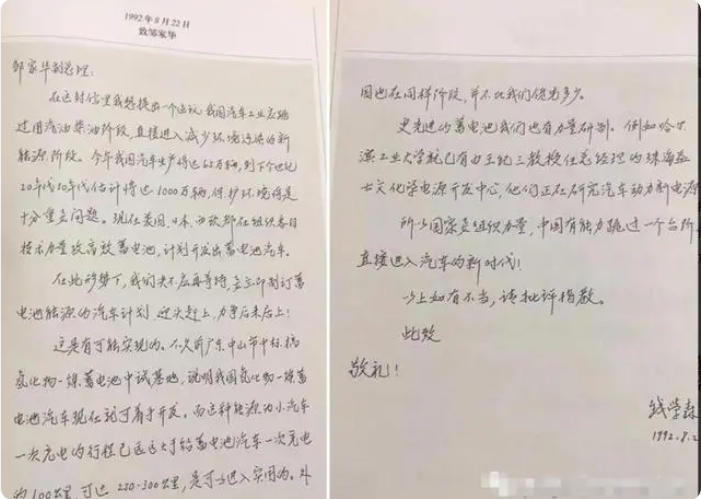 1992年8月22日
致邹家华
邹家华副总理:
在这封信里我想提出一个建议:我国汽车工业应跳
过用汽油柴油阶段,直接进入减少环境污染的新
能源阶段。今年我国汽车生产将达65万辆,到下个世纪
20年代30年代估计将达1000万辆,保护环境将是
十分重要问题。现在美国、日本、西欧都在组织各自
技术力量攻高效蓄电池,计划开发出蓄电池汽车。
在此形势下,我们决不应再等待,要立即制订蓄
电池能源的汽车计划,迎头赶上,力争后来居上!
这是有可能实现的。不久前广东中山市中标,搞
氢化物—镍蓄电池中试基地,说明我国氢化物—镍蓄
电池汽车现在就可着手开发。而这种能源的小汽车
一次充电的行程已远远大于铅蓄电池汽车一次充电
的100公里,可达250-300公里,是可以进入实用的。外
国也在同样阶段,并不比我们优先多少。
更先进的蓄电池我们也有力量研制。例如哈尔
滨工业大学就已有由王纪三教授任总经理的珠海益
士文化学电源开发中心,他们正在研究汽车动力新电源
所以国家要组织力量,中国有能力跳过一个台阶,
直接进入汽车的新时代!
以上如有不当,请批评指教。
此致
敬礼!
钱学森
1992.8.2